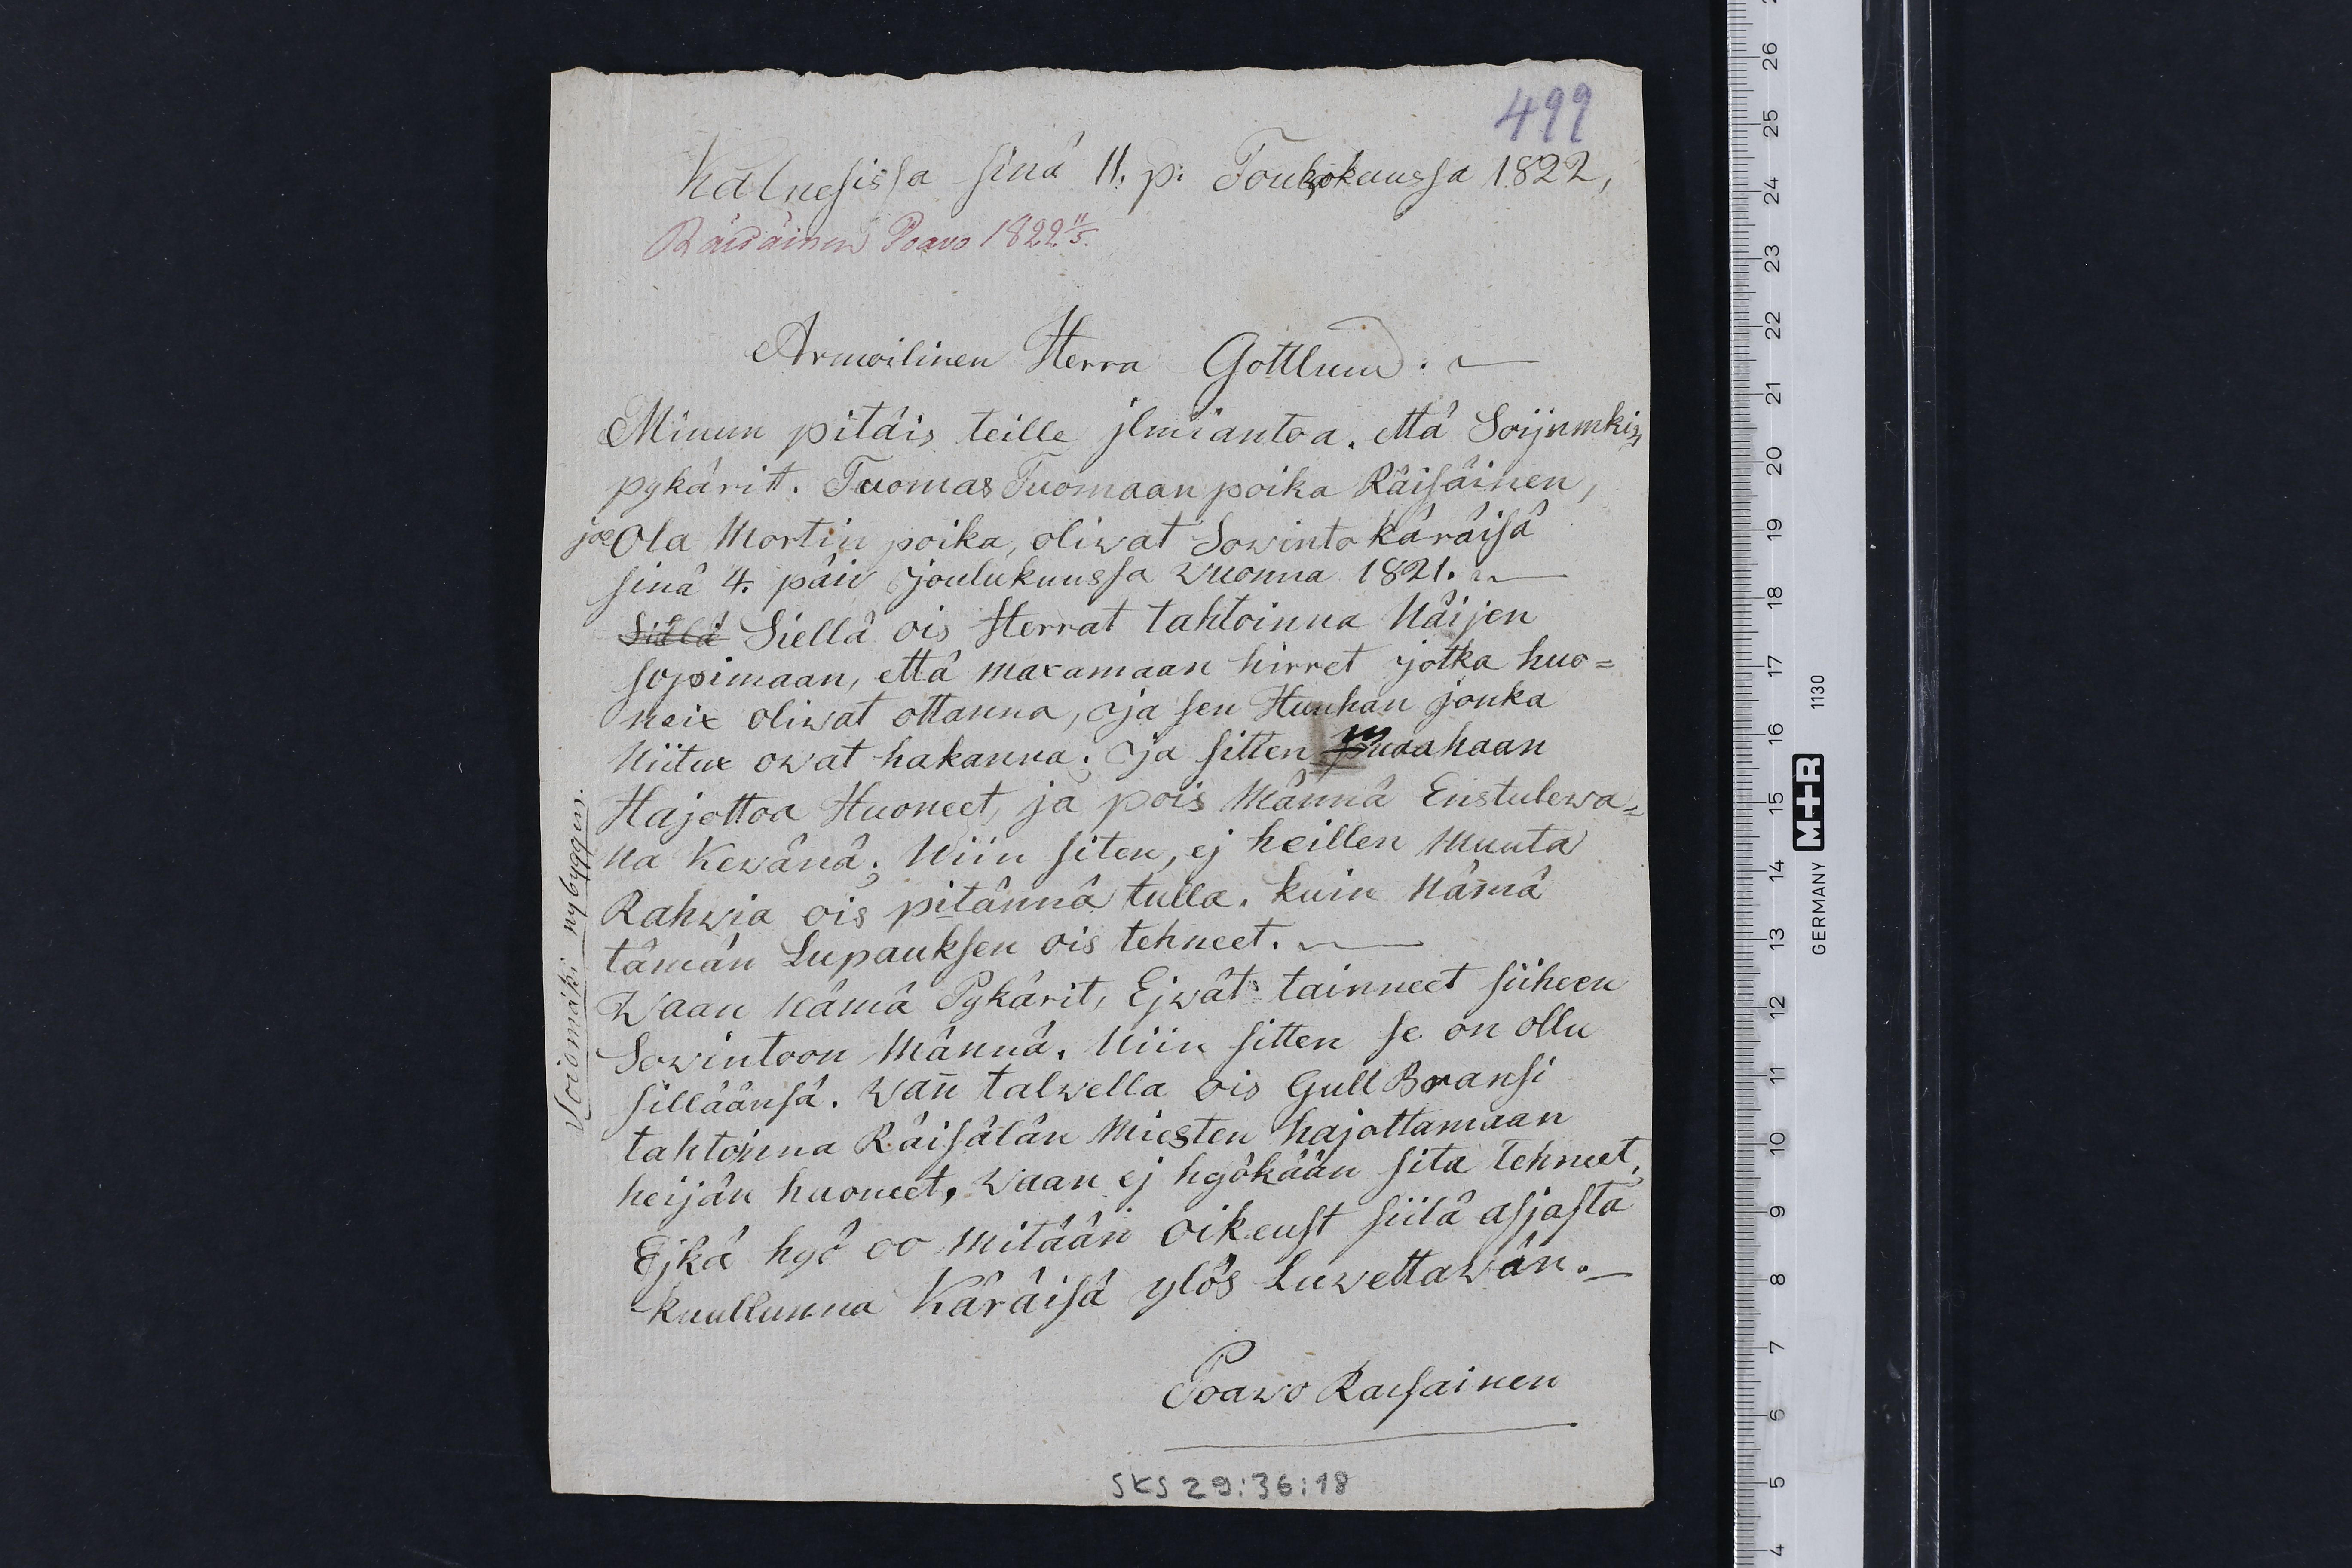 499
Kalnesissa sinä 11. p: Toukokuussa 1822,
Räisäinen Poavo 1822 11/5.
Armoilinen Herra Gottlund.
Minun pitäis teille jlmiantoa. että Soijnmkin
pykärit. Tuomas Tuomaan poika Räisäinen,
ja Ola Mortin poika, oliwat Sowinto käräisä
sinä 4. päiv joulukuussa wuonna 1821.
Siälä Siellä ois Herrat tahtoinna Näijen
sopimaan, että maxamaan hirret jotka huo=
neix oliwat ottanna, ja sen Huuhan jonka
Niitux owat hakanna. ja sitten muahaan
Hajottoa Huoneet, ja pois Männä Enstulewa=
na Kevänä; Niin siten, ej heillen Muuta
Rahwia ois pitännä tulla. kuin Nämä
tämän Lupauksen ois tehneet.
Waan Nämä Pykärit, Ejwät tainneet siiheen
Sowintoon Männä. Niin sitten se on ollu
silläänsä. Wan̄ talwella ois Gull Bransi
tahtoinna Räisälän Miesten hajottamaan
heijän huoneet, Waan ej hyökään sitä tehneet,
Ejkä hyö oo Mitään oikeust siilä asjasta
kuullunna Käräisä ylös Luwettawan.
Poawo Raisainen
Soiomäki nybyggen.
SKS 29:36:18
26
25
24
23
22
21
20
19
18
17
16
15
14
13
12
11
10
9
8
7
6
5
4
GERMANY M+R 1130